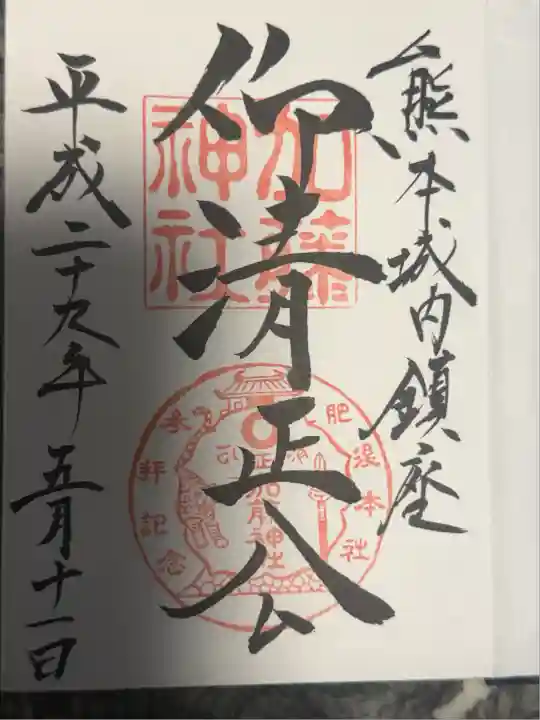 熊本城内鎮座
仰清正公
加藤神社
平成二十九年五月十一日
加藤神社
本社
参拝記念